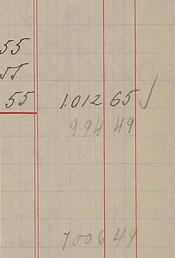 55
55
55 1.012 65 ✓
994 49
1006 49